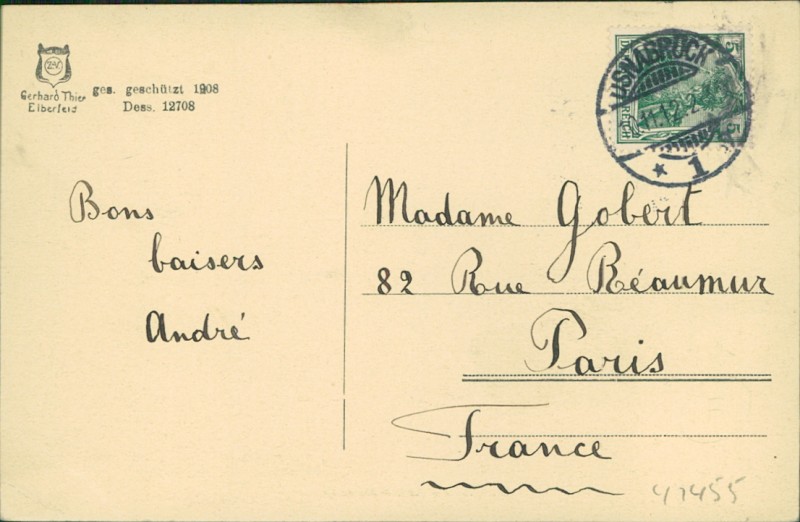 Gerhard Thier
Elberfeld
ges. geschützt 1908
Dess. 12708
OSNABRÜCK
* 1
5
5
REICH
Bons
baisers
André
Madame Gobert
82 Rue Réaumur
Paris
France
41455